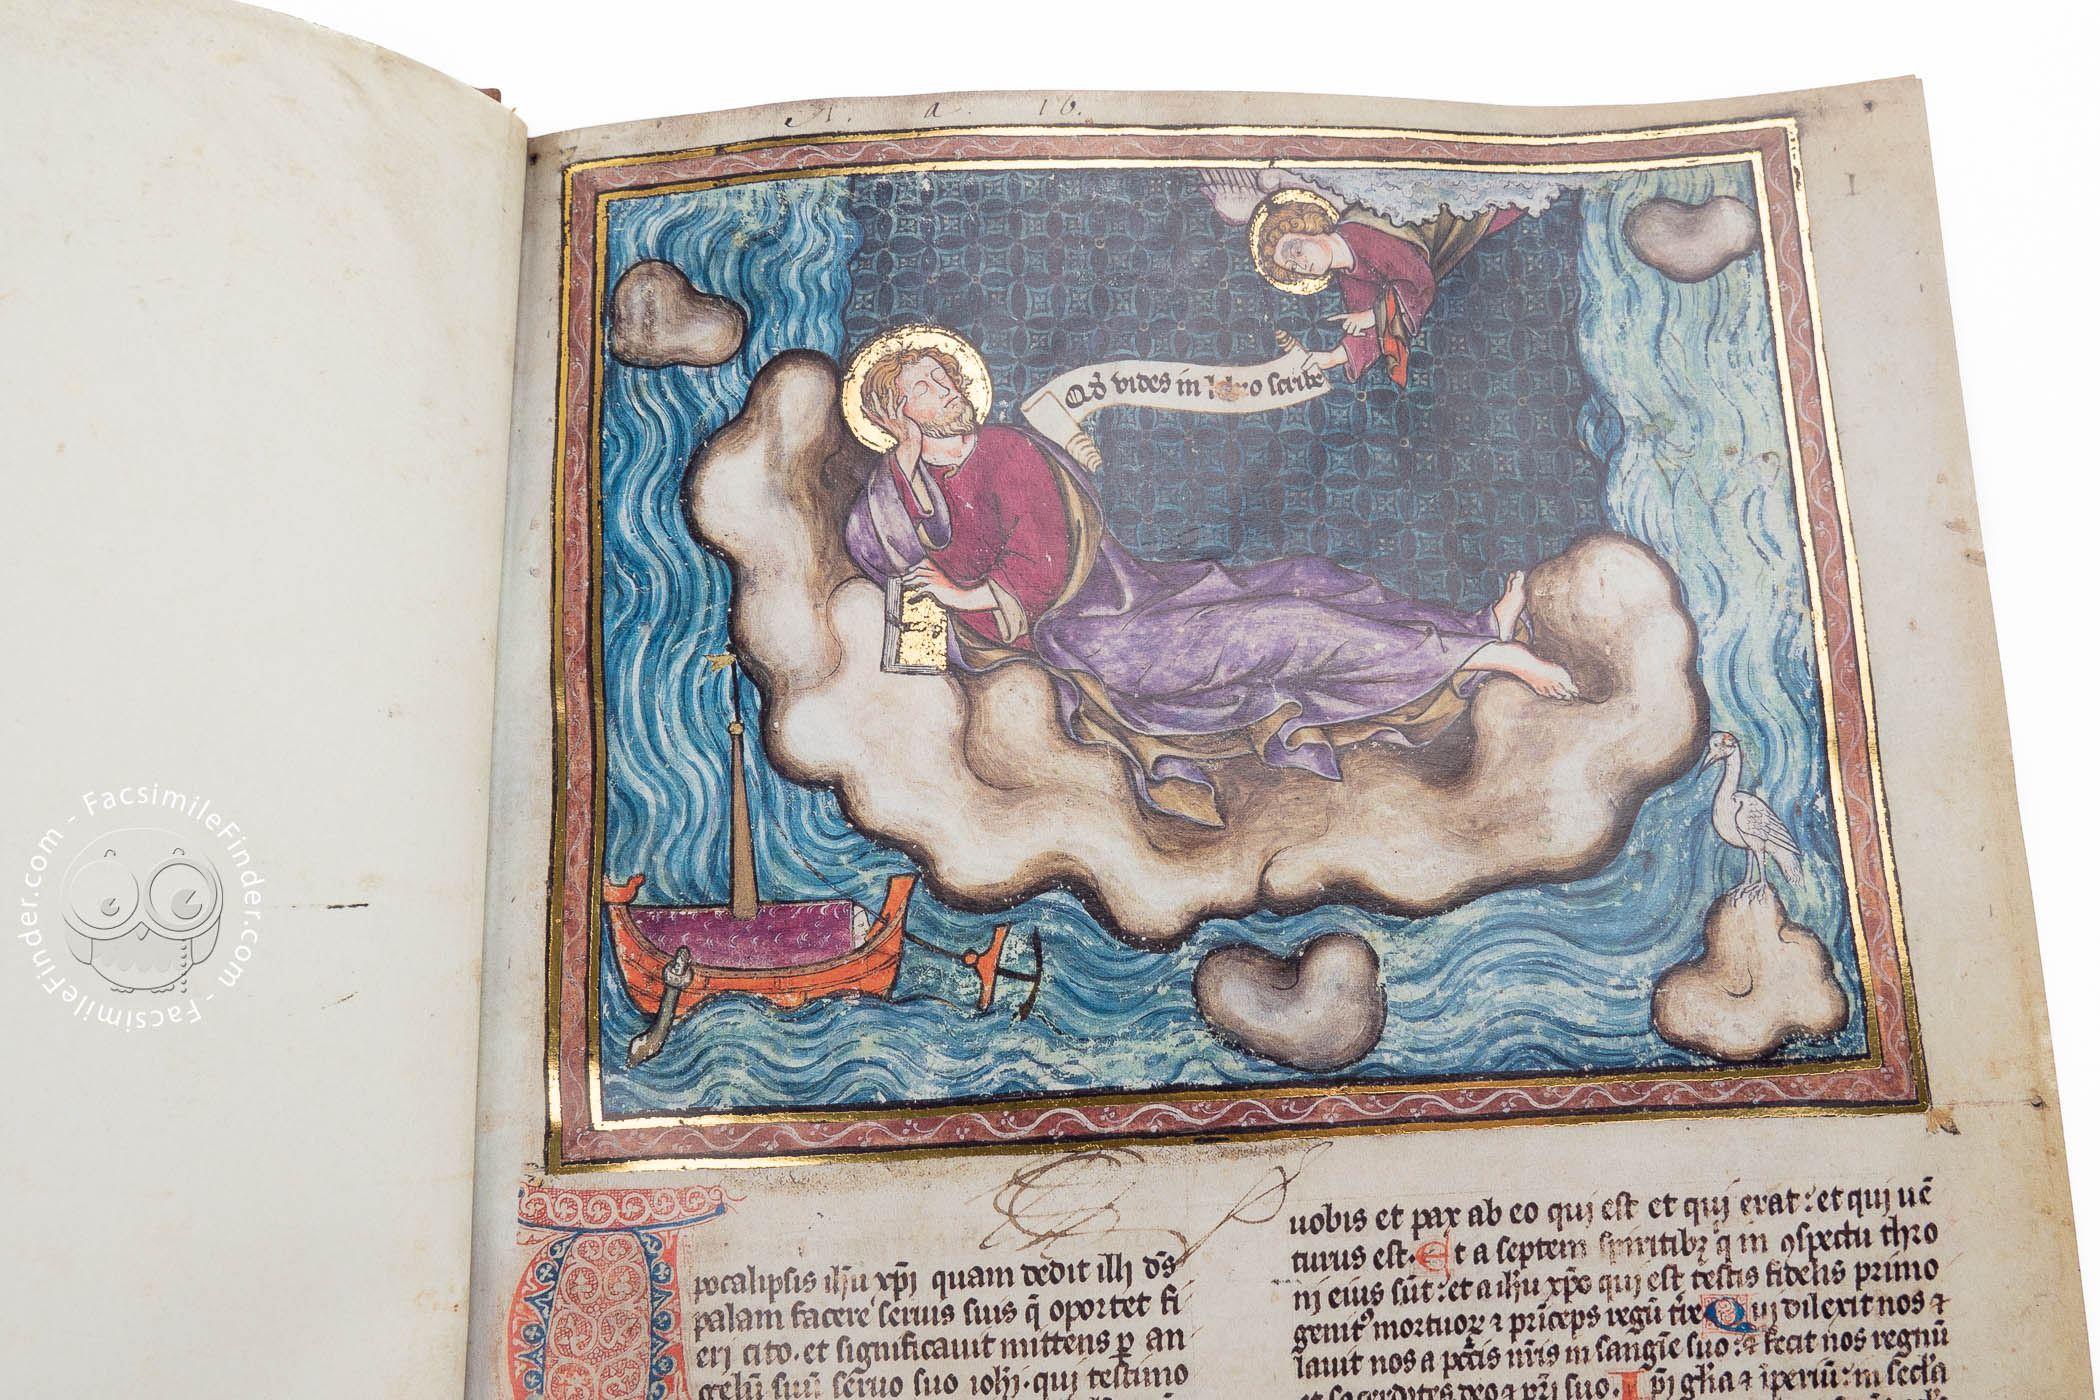 A. a. 16.
1
Qd vides in libro scribe
FacsimileFinder.com - FacsimileFinder.com -
pocalipsis ihu xpi quam dedit illi ds
palam facere seruis suis q oportet fi
eri cito. et significauit mittens p an
gelu suu seruo suo iohi. qui testimo
uobis et pax ab eo qui est et qui erat: et qui ue
turus est. Et a septem spiritibꝫ q in ꝯspectu thro
ni eius sut: et a ihu xpo qui est testis fidelis primo
genitꝰ mortuoꝝ ⁊ princeps regu tre Qui dilexit nos ⁊
lauit nos a pctis nris in sangie suo: ⁊ fecit nos regnu
et sacerdotes deo ⁊ pri suo. Ipi glia ⁊ iperiu: in secla